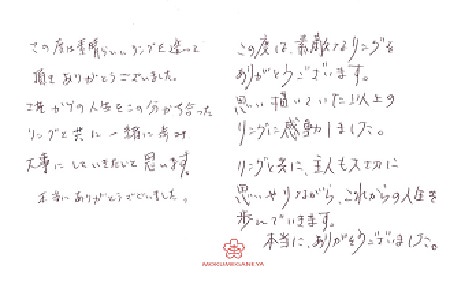 この度は素晴らしいリングを造って
頂きありがとうございました。
これからの人生をこの分かち合った
リングと共に一緒に歩み
大事にしていきたいと思います。
本当にありがとうございました。
この度は、素敵なリングを
ありがとうございます。
思い描いていた以上の
リングに感動しました。
リングと共に、主人も大切に
思いやりながら、これからの人生を
歩んでいきます。
本当に、ありがとうございました。
MOKUMEGANEYA